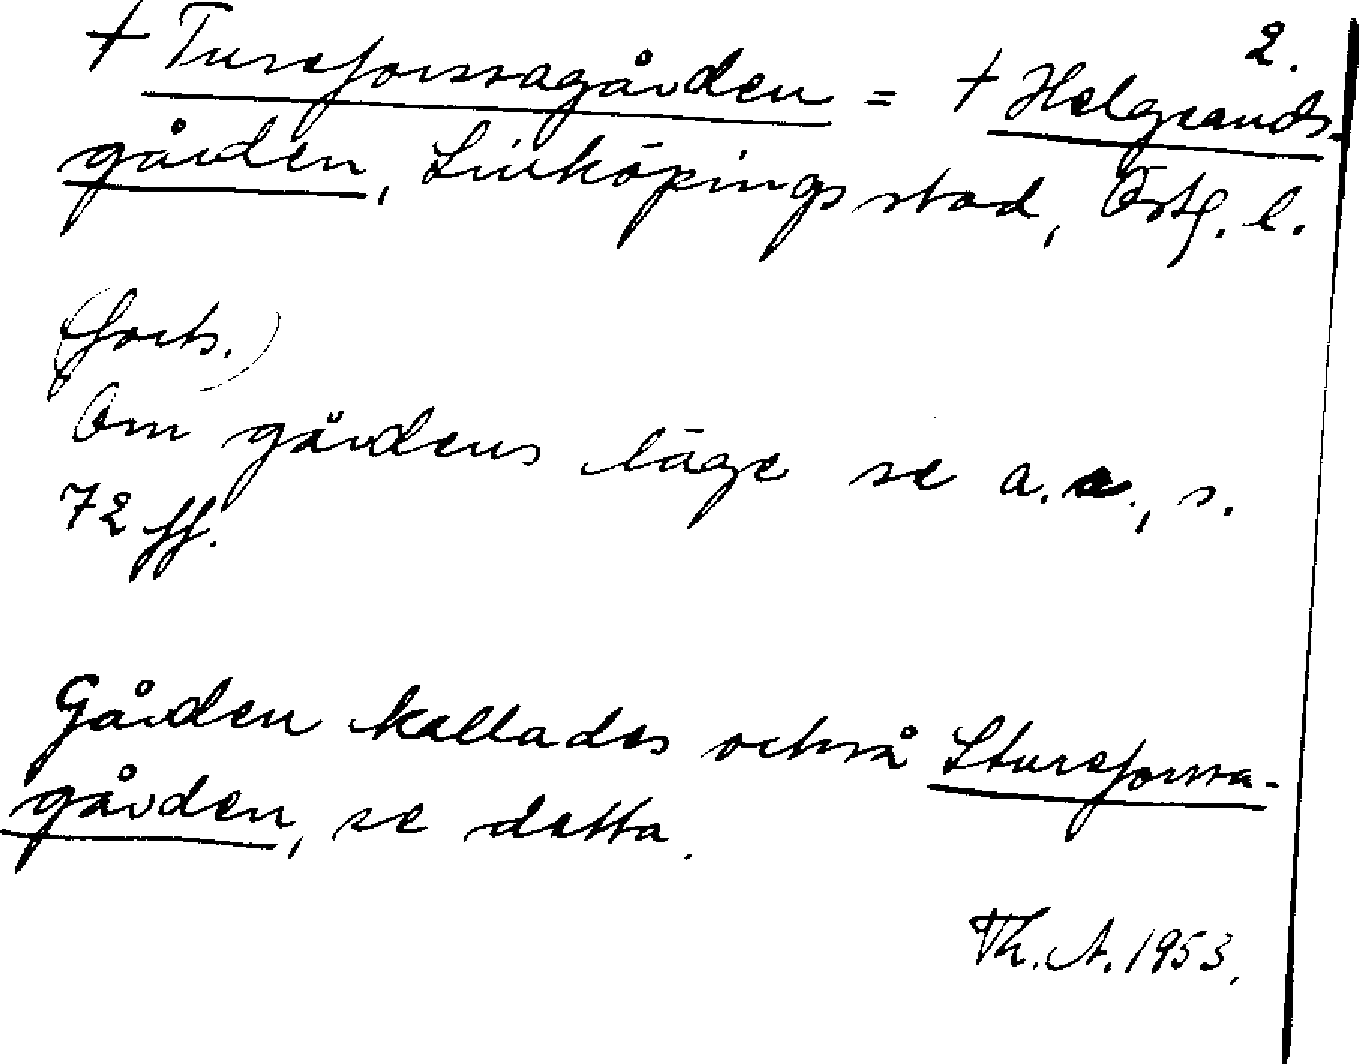 2.
† Tureforssagården = † Helgeands-
gården, Linköpings stad, Östg. l.
(forts.)
Om gårdens läge se a.a., s.
72 ff.
Gården kallades också Stureforssa-
gården, se detta.
Th. A. 1953.